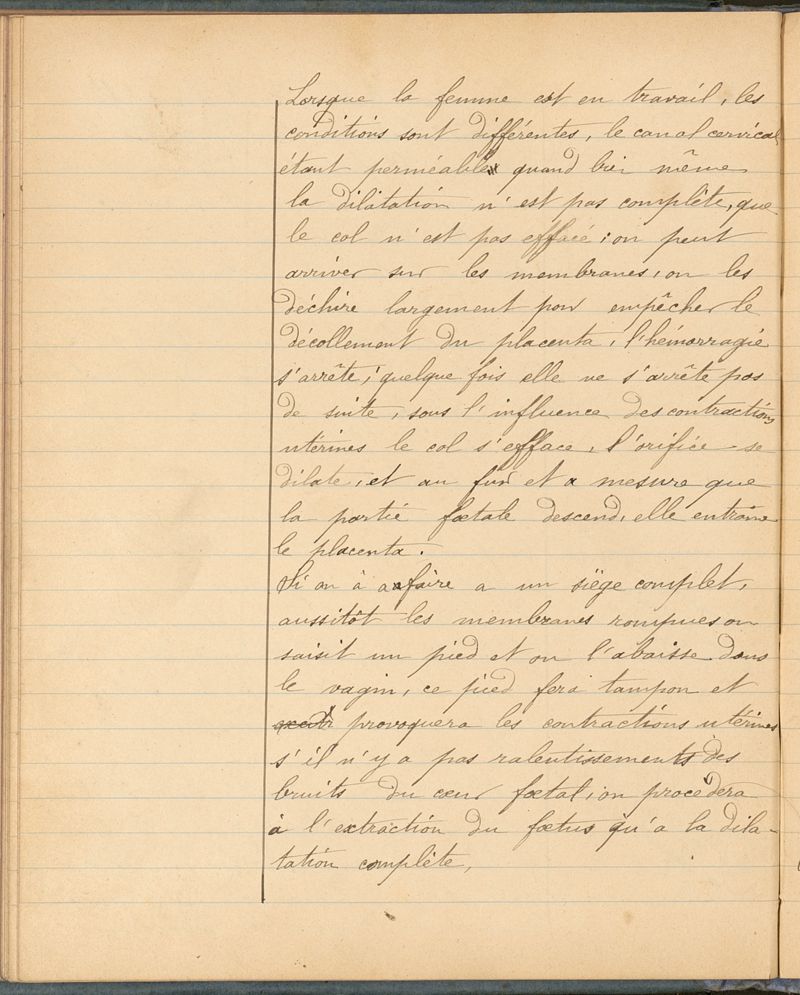 Lorsque la femme est en travail, les
conditions sont différentes, le canal cervical
étant perméable quand bien même
la dilatation n'est pas complète, que
le col n'est pas effacé ; on peut
arriver sur les membranes, on les
déchire largement pour empêcher le
décollement du placenta, l'hémorragie
s'arrête, quelque fois elle ne s'arrête pas
de suite, sous l'influence des contractions
utérines le col s'efface, l'orifice se
dilate, et au fur et a mesure que
la partie fœtale descend, elle entraîne
le placenta.
Si on à affaire a un siège complet,
aussitôt les membranes rompues on
saisit un pied et on l'abaisse dans
le vagin, ce pied fera tampon et
provoquera les contractions utérines
s'il n'y a pas ralentissements des
bruits du cœur fœtal, on procèdera
à l'extraction du fœtus qu'a la dila-
tation complète,